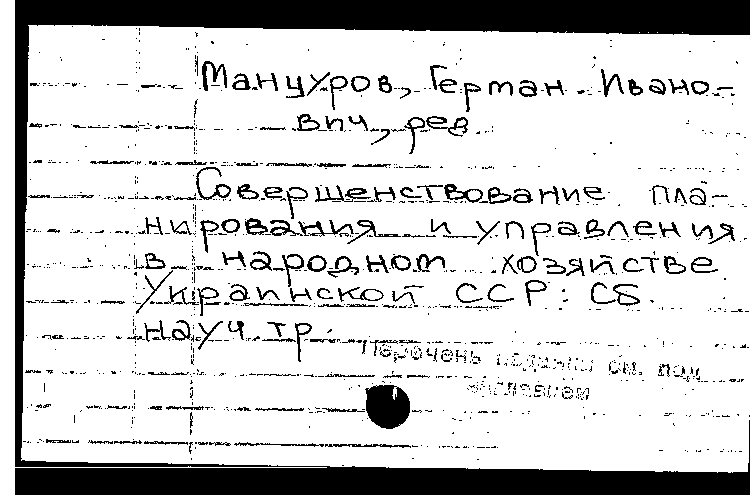 Манцуров, Герман Ивано-
вич, ред.
Совершенствование пла-
нирования и управления
в народном хозяйстве
Украинской ССР: Сб.
науч. тр.
Перечень см. под
заглавием